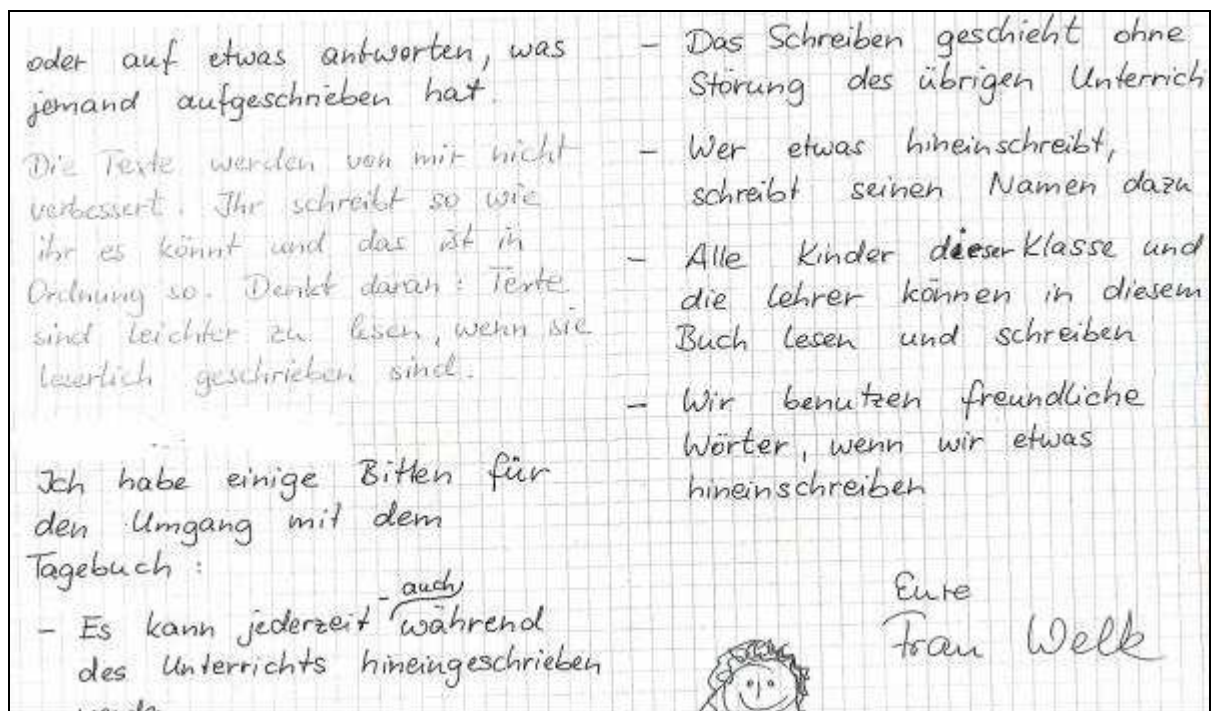 oder auf etwas antworten, was
jemand aufgeschrieben hat.
Die Texte werden von mir nicht
verbessert. Ihr schreibt so wie
ihr es könnt und das ist in
Ordnung so. Denkt daran: Texte
sind leichter zu lesen, wenn sie
leserlich geschrieben sind.
Ich habe einige Bitten für
den Umgang mit dem
Tagebuch:
- Es kann jederzeit - auch während
des Unterrichts hineingeschrieben
- Das Schreiben geschieht ohne
Störung des übrigen Unterrich
- Wer etwas hineinschreibt,
schreibt seinen Namen dazu
- Alle Kinder dieser Klasse und
die Lehrer können in diesem
Buch lesen und schreiben
- Wir benutzen freundliche
Wörter, wenn wir etwas
hineinschreiben
Eure
Frau Welk